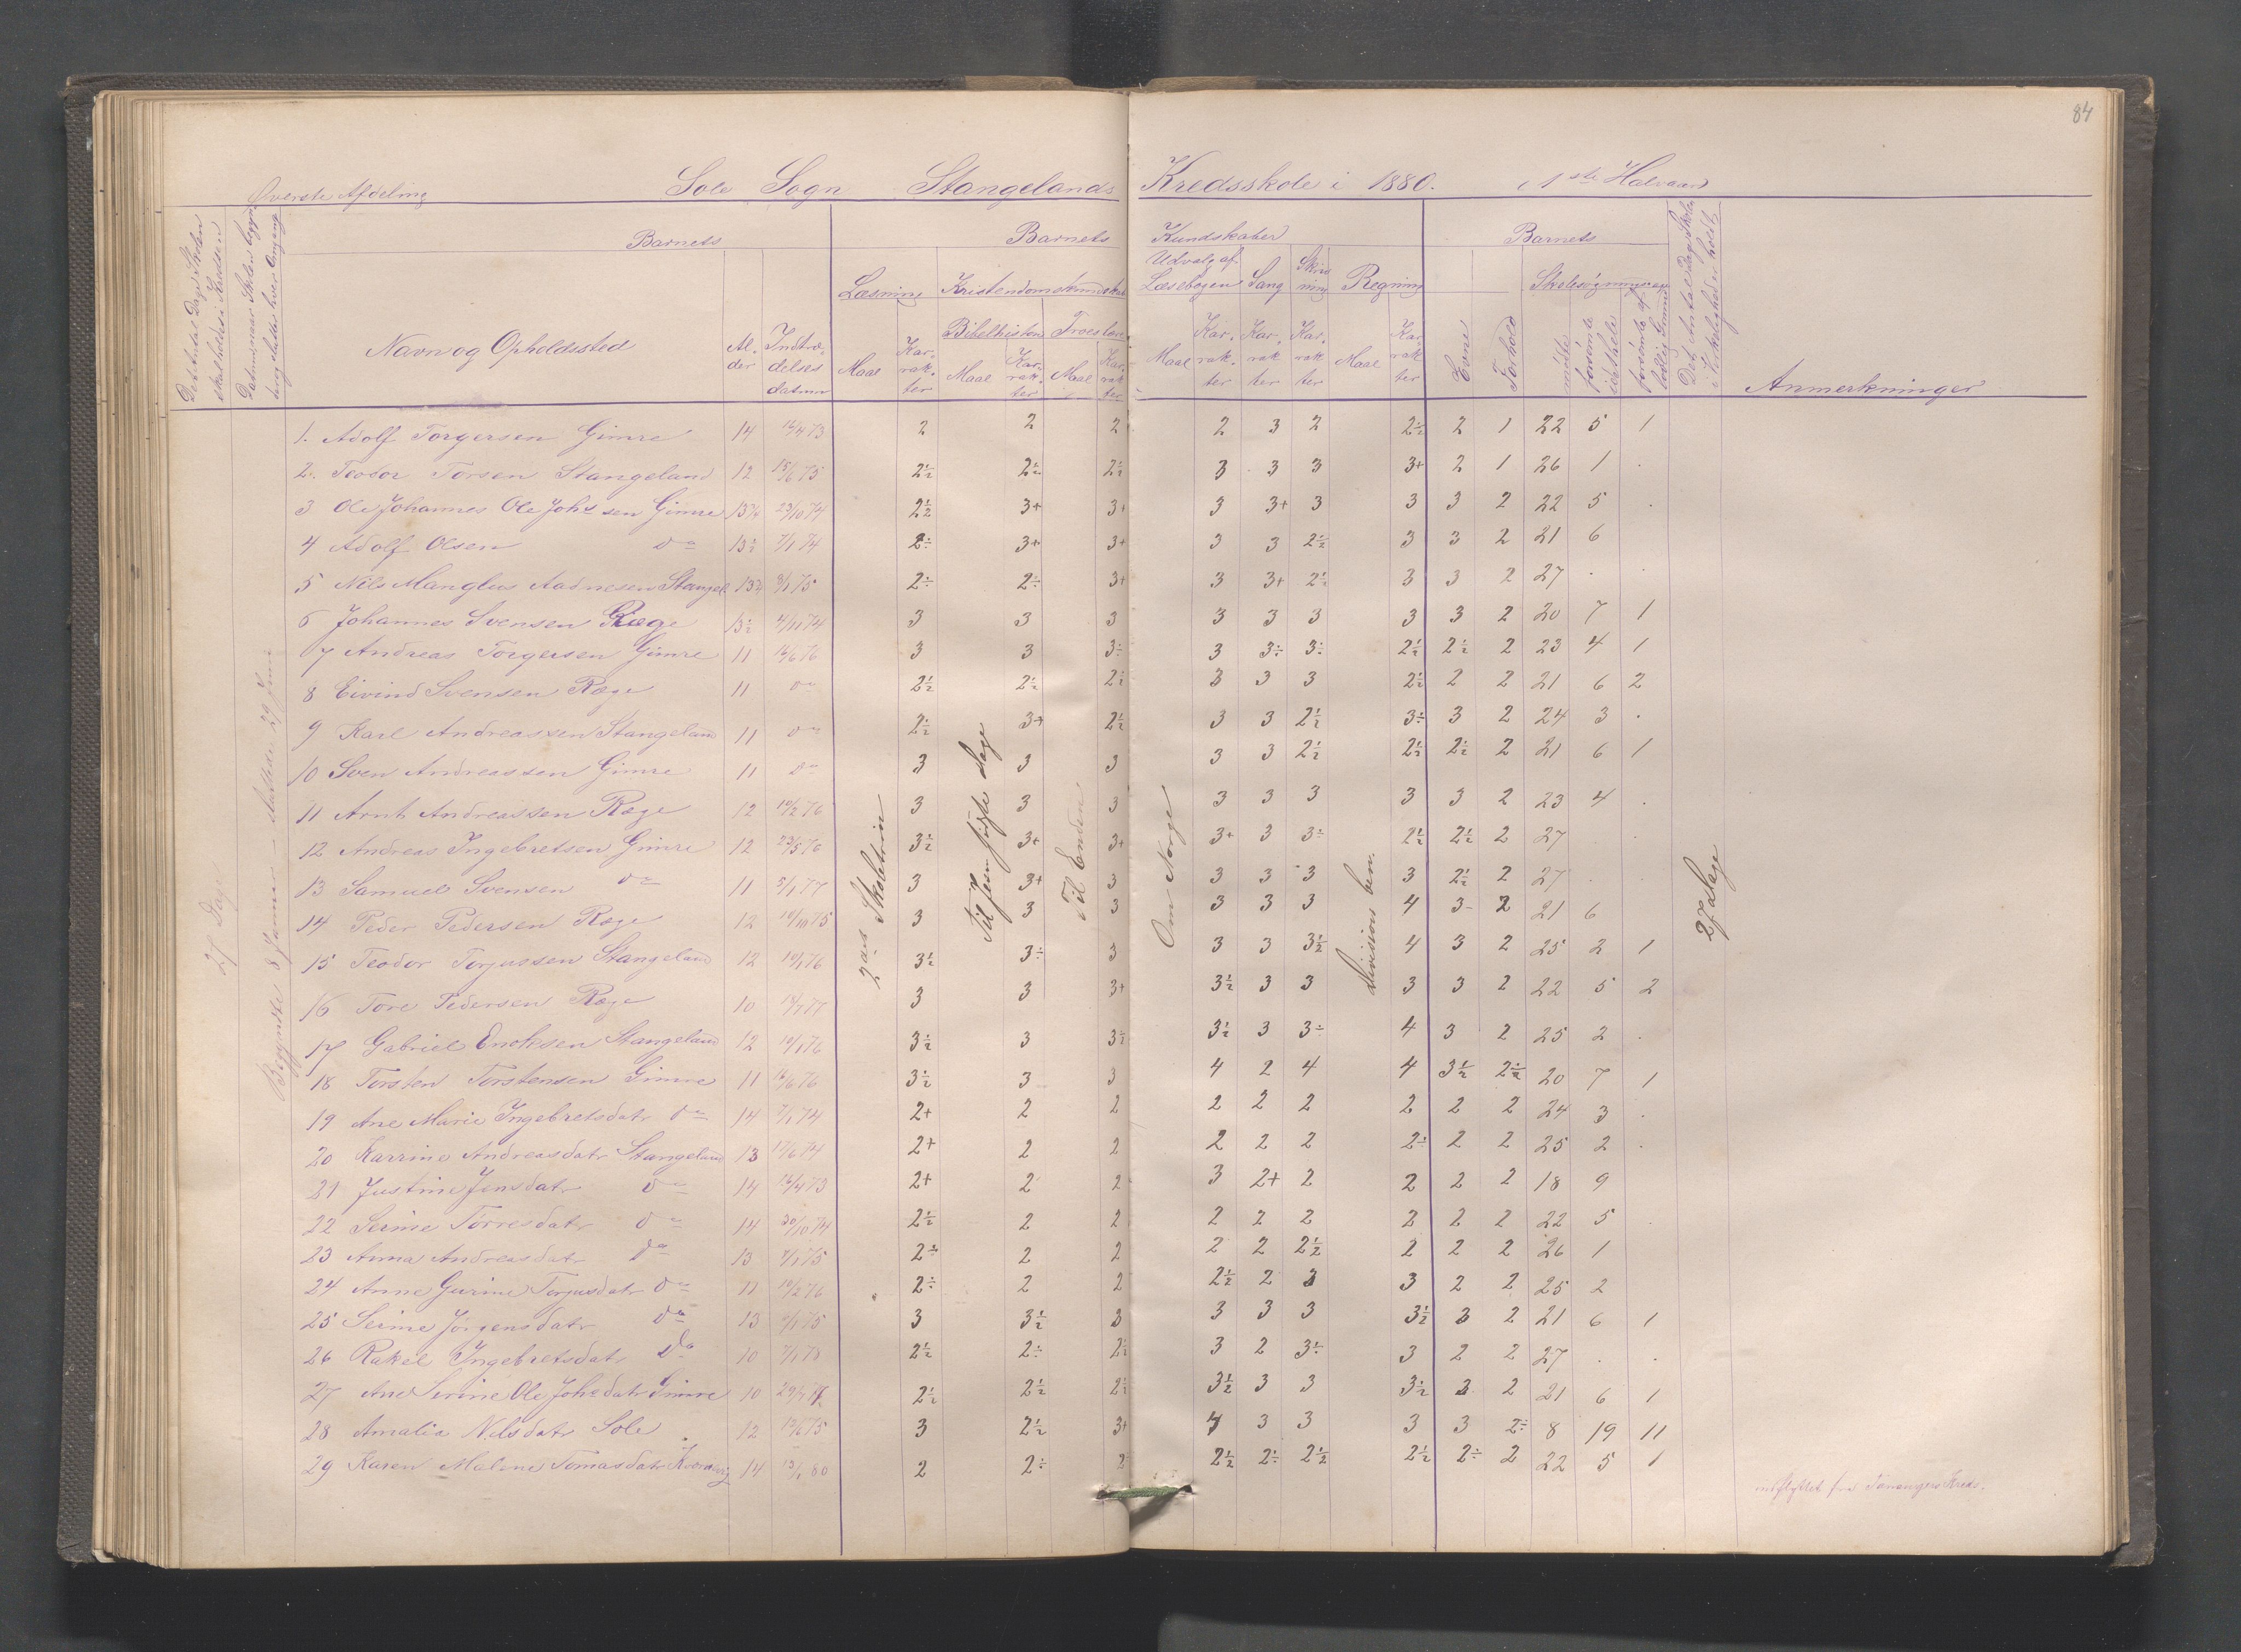 84
Øverste Afdeling Sole Sogn Stangelands Kredsskole i 1880. 1ste Halvaar
Det Antal Dage Skolen skal holdes i Kredsen
Datumet naar Skolen begyndte
Barnets Barnets Kundskaber Barnets
Navn og Opholdssted
Alder
Indtrædelses datum
Læsning
Kristendomskundskab
Bibelhistorie
Troeslære
Udvalg af Læsebogen
Sang
Skrivning
Regning
Maal Karakter Maal Karakter Maal Karakter Maal Karakter Karakter Karakter Maal Karakter
Evne
Forhold
Skolesøgning
mødte
forsømte i det hele
forsømte af lovlig Grund
Det Antal Dage Skolen i Virkeligheden holdt
Anmerkninger
27 Dage
Begyndte 8 Januar - sluttede 29 Juni
2det Skoletrin
Til Jesu sidste Dage
Til Enden
Om Norge
Division ben.
27 Dage
1. Adolf Torgersen Gimre 14 12/4 73 2 2 2 2 3 2 2÷ 2 1 22 5 1
2. Teodor Torsen Stangeland 12 15/6 75 2½ 2½ 2½ 3 3 3 3+ 2 1 26 1 .
3 Ole Johannes Ole Johs sen Gimre 13¾ 23/10 74 2½ 3+ 3+ 3 3+ 3 3 3 2 22 5 .
4 Adolf Olsen do 13½ 7/1 74 2÷ 3+ 3+ 3 3 2½ 3 3 2 21 6
5 Nils Manglius Aadnesen Stangel. 13¾ 8/1 75 2÷ 2÷ 3+ 3 3+ 2½ 3 3 2 27 . .
6 Johannes Svensen Ræge 13½ 4/11 74 3 3 3 3 3 3 3 3 2 20 7 1
7 Andreas Torgersen Gimre 11 12/6 76 3 3 3÷ 3 3÷ 3÷ 2½ 2½ 2 23 4 1
8 Eivind Svensen Ræge 11 do 2½ 2½ 2½ 3 3 3 2½ 2 2 21 6 2
9 Karl Andreassen Stangeland 11 do 2½ 3+ 2½ 3 3 2½ 3÷ 3 2 24 3 .
10 Sven Andreassen Gimre 11 do 3 3 3 3 3 2½ 2½ 2½ 2 21 6 1
11 Arnt Andreassen Ræge 12 10/2 76 3 3 3 3 3 3 3 3 2 23 4 .
12 Andreas Ingebretsen Gimre 12 23/5 76 3½ 3+ 3+ 3+ 3 3÷ 2½ 2½ 2 27 .
13 Samuel Svensen do 11 5/1 77 3 3+ 3 3 3 3 3 2½ 2 27 . .
14 Peder Pedersen Ræge 12 10/10 75 3 3 3 3 3 3 4 3 2 21 6
15 Teodor Torjussen Stangeland 12 10/1 76 3½ 3÷ 3 3 3 3½ 4 3 2 25 2 1
16 Tore Pedersen Ræge 10 13/7 77 3 3 3+ 3½ 3 3 3 3 2 22 5 2
17 Gabriel Ericksen Stangeland 12 10/1 76 3½ 3 3½ 3½ 3 3÷ 4 3 2 25 2 .
18 Torsten Torstensen Gimre 11 12/6 76 3½ 3 3 4 2 4 4 3½ 2½ 20 7 1
19 Ane Marie Ingebretsdatr do 14 7/1 74 2+ 2 2 2 2 2 2 2 2 24 3 .
20 Karrine Andreasdatr Stangeland 13 17/6 74 2+ 2 2 2 2 2 2÷ 2 2 25 2 .
21 Justine Jensdatr do 14 12/4 73 2+ 2 2 3 2+ 2 2 2 2 18 9
22 Serine Torresdatr do 14 30/10 74 2½ 2 2 2 2 2 2 2 2 22 5 .
23 Anna Andreasdatr do 13 7/1 75 2÷ 2 2 2 2 2½ 2 2 2 26 1
24 Anne Gurine Torjusdatr do 11 10/2 76 2÷ 2 2 2½ 2 3 3 2 2 25 2
25 Serine Jörgensdatr do 13 7/1 75 3 3½ 3 3 3 3 3½ 3 2 21 6 1
26 Rakel Ingebretsdatr do 10 7/1 78 2½ 2÷ 2½ 3 2 3÷ 3 2 2 27 . .
27 Ane Serine Ole Johsdatr Gimre 10 29/1 77 2½ 2½ 2½ 3½ 3 3 3½ 3 2 21 6 1
28 Amalia Nilsdatr Sole 12 12/6 75 3 2½ 3+ 4 3 3 3 3 2÷ 8 19 11
29 Karen Malene Tomasdatr 14 13/1 80 2 2÷ 2 2½ 2÷ 2½ 2½ 2÷ 2 22 5 1 indflyttet fra Tanangers Kreds.